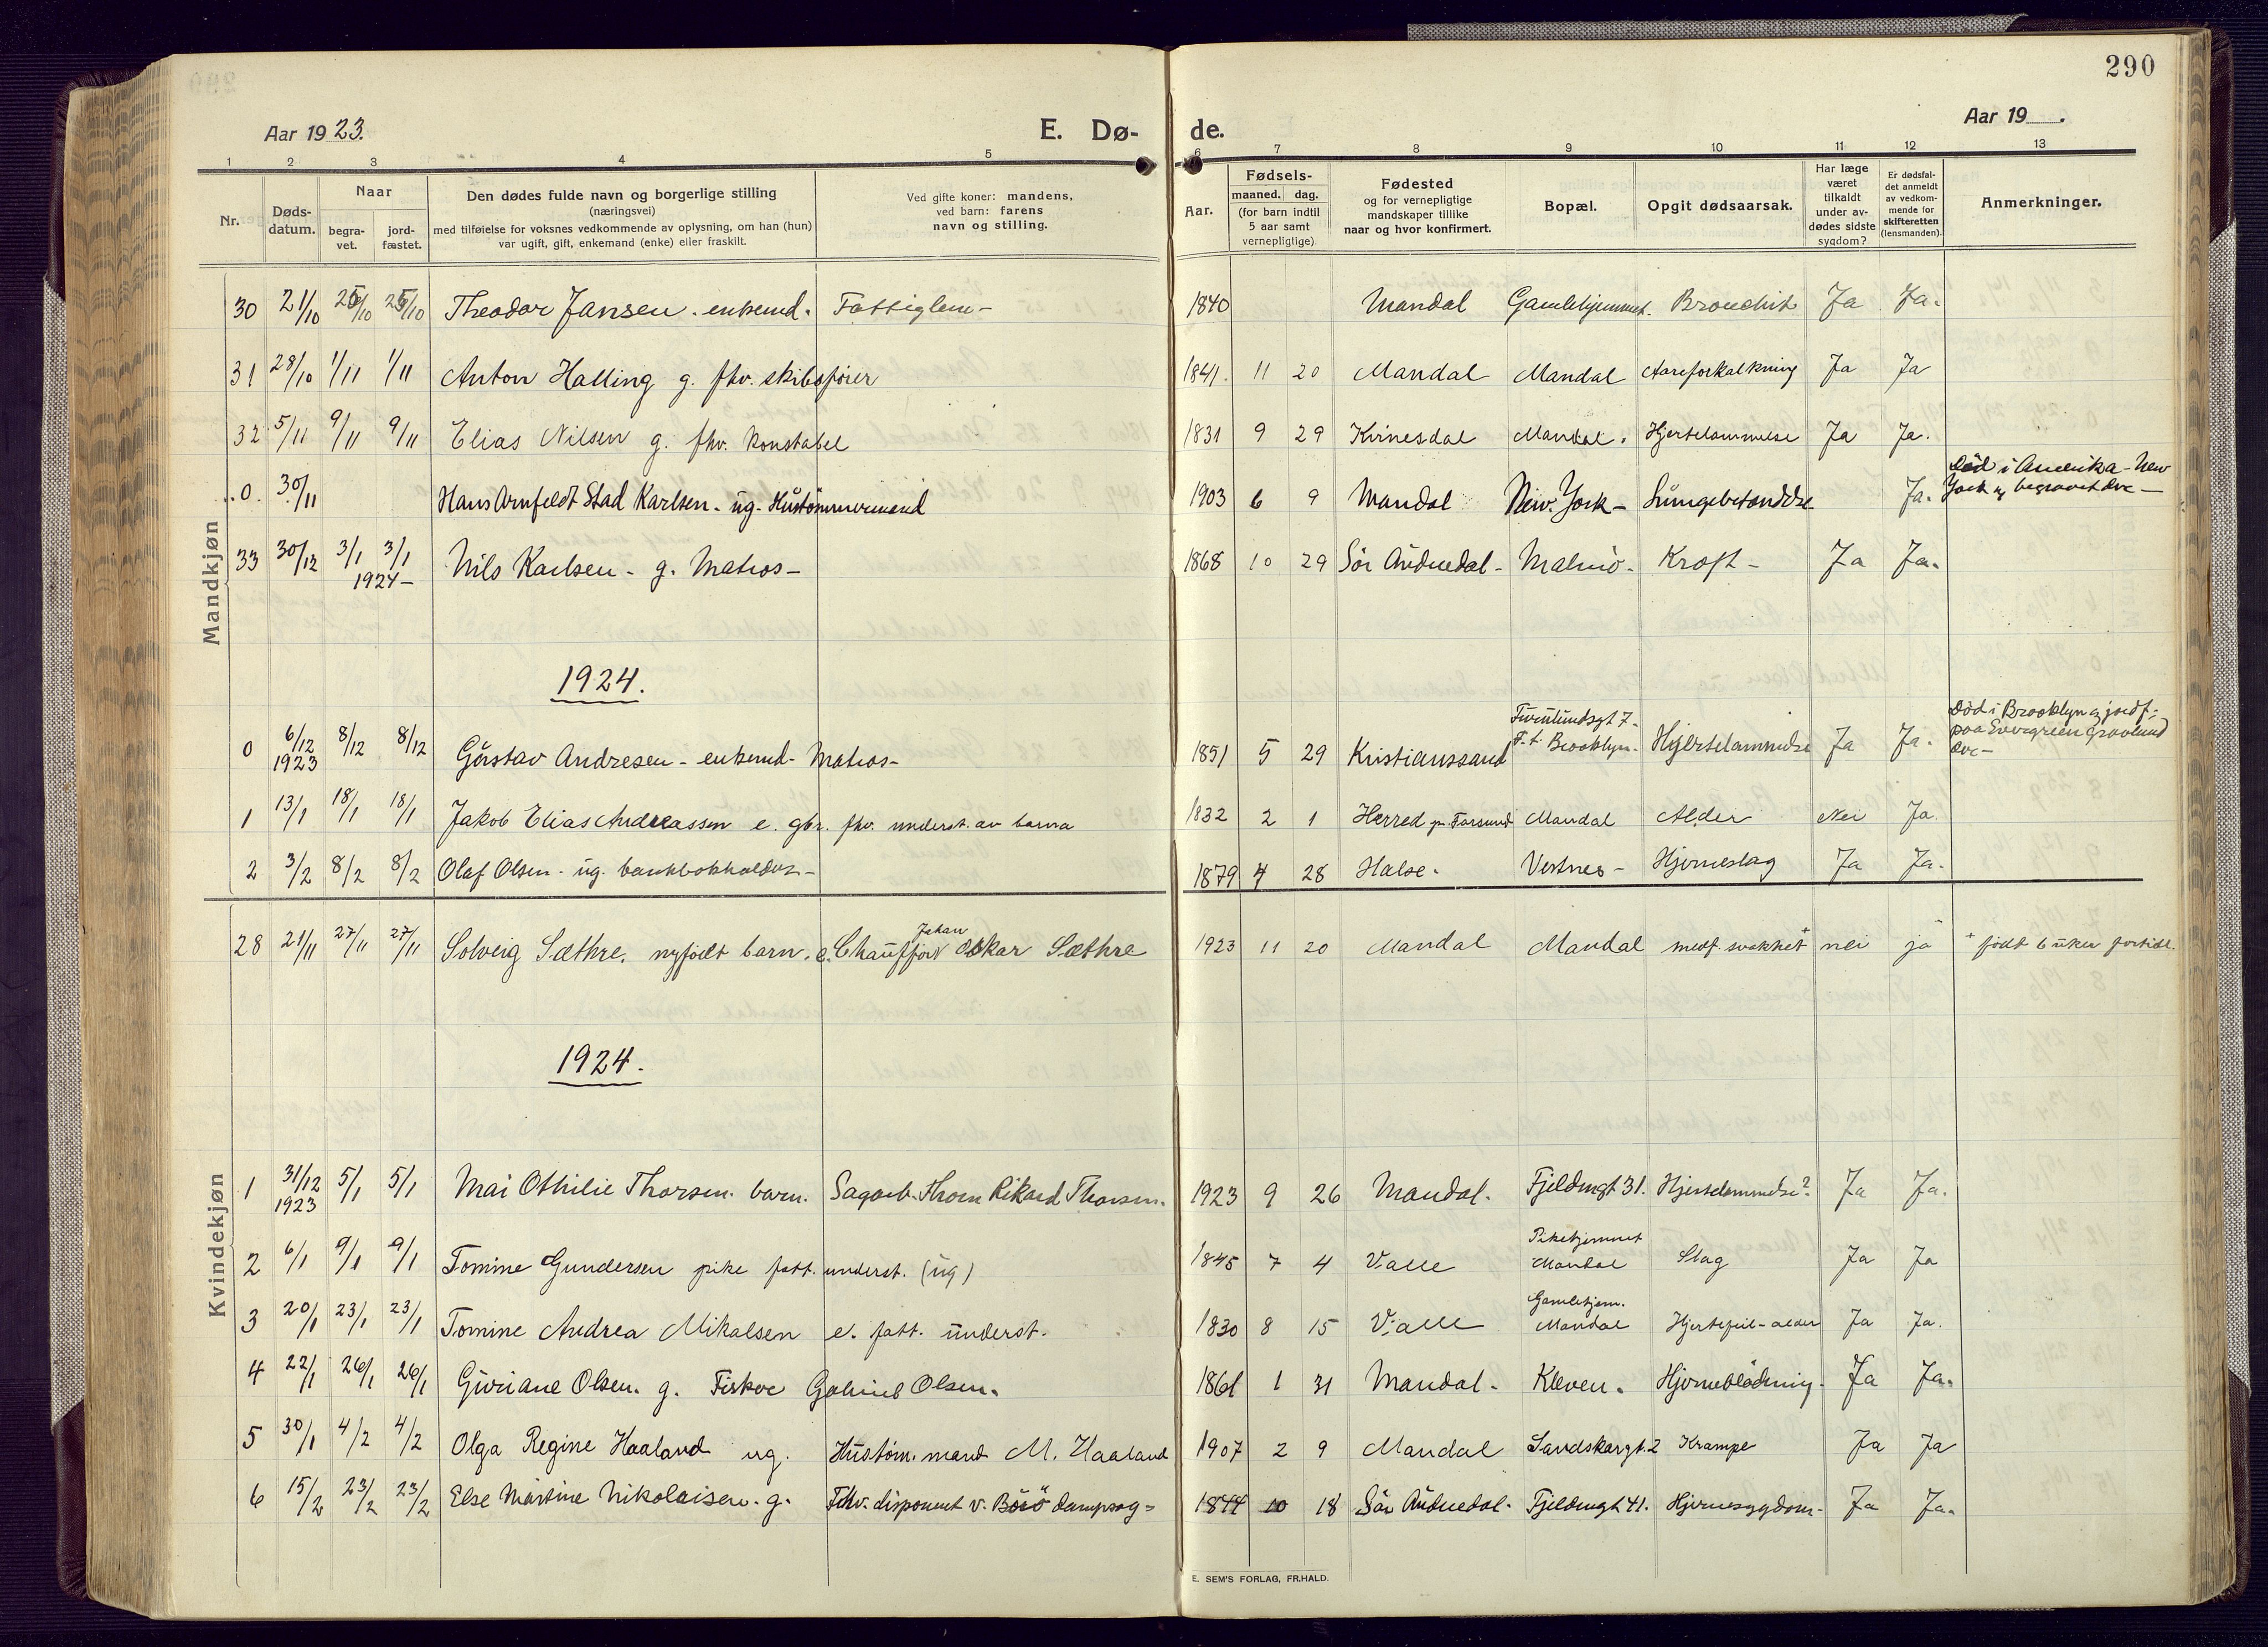 290
Aar 1923.
E. Dø-
de.
Aar 19 .
1 2 3 4 5 6 7 8 9 10 11 12 13
Nr.
Døds-
datum.
Naar
begra-
vet.
jord-
fæstet.
Den dødes fulde navn og borgerlige stilling
(næringsvei)
med tilføielse for voksnes vedkommende av oplysning, om han (hun)
var ugift, gift, enkemand (enke) eller fraskilt.
Ved gifte koner: mandens,
ved barn: farens
navn og stilling.
Aar.
Fødsels-
maaned. dag.
(for barn indtil
5 aar samt
vernepligtige).
Fødested
og for vernepligtige
mandskaper tillike
naar og hvor konfirmert.
Bopæl.
Opgit dødsaarsak.
Har læge
været
tilkaldt
under av-
dødes sidste
sygdom?
Er dødsfal-
det anmeldt
av vedkom-
mende for
skifteretten
(lensmanden).
Anmerkninger.
Mandkjøn
30 21/10 Theodor Jansen. enkemd. Fattiglem- 1840 Mandal Gamlehjemmet. Bronchit Ja Ja.
31 28/10 1/11 1/11 Anton Halling g. fhv. skibsfører 1841. 11 20 Mandal Mandal Aareforkalkning Ja Ja
32 5/11 9/11 9/11 Elias Nilsen g. fhv. konstabel 1831 9 29 Kvinesdal Mandal. Hjertelammelse Ja Ja.
0. 30/11 Hans Arnfeldt Stad Karlsen. ug. Hustømmermand 1903 6 9 Mandal New. York- Lungebetændelse Ja. Død i Amerika - New
York og begravet dre-
33 30/12 3/1 3/1 Nils Karlsen - g. Matros- 1868 10 29 Sør Audnedal- Malmø- Kræft- Ja Ja.
1924-
1924.
0 6/12 8/12 8/12 Gustav Andresen - enkemd- Matros- 1851 5 29 Kristianssand F.t. Brooklyn. Hjertelammelse Ja Ja. Død i Brooklyn og jordf.
1923 paa Evergreen Gravlund
1 13/1 18/1 18/1 Jakob Elias Andreassen e. gbr. fhv. underst. av barna 1832 2 1 Herred pr. Farsund Mandal Alder Nei Ja.
2 3/2 8/2 8/2 Olaf Olsen - ug. bankbokholder- 1879 4 28 Halse. Vestnes- Hjerneslag Ja Ja.
Kvindekjøn
28 21/11 27/11 27/11 Solveig Sæthre. nyfødt barn. Chauffør Johan Oskar Sæthre 1923 11 20 Mandal Mandal medf. svakhet+ nei ja + født 6 uker fortidl.
1924.
1 31/12 5/1 5/1 Mai Othilie Thorsen. barn. Sagarb. Thom Rikard Thorsen. 1923 9 26 Mandal. Fjeldvngt 31. Hjertelammelse? Ja Ja.
1923
2 6/1 9/1 9/1 Tomine Gundersen pike fatt. underst. (ug) 1845 7 4 Valle Pikehjemmet
Mandal Slag Ja Ja
3 20/1 23/1 23/1 Tomine Andrea Mikalsen e. fatt. underst. 1830 8 15 Valle Gamlehjem.
Mandal Hjertefeil-alder Ja Ja.
4 22/1 26/1 26/1 Guriane Olsen. g. Fisker Gabriel Olsen. 1861 1 31 Mandal. Kleven. Hjerneblødning. Ja Ja.
5 30/1 4/2 4/2 Olga Regine Haaland ug. Hustøm.mand M. Haaland 1907 2 9 Mandal Landskargt. 2 Krampe Ja Ja
6 15/2 23/2 23/2 Else Martine Nikolaisen. g. Fhv. disponent v. Börö dampsag- 1844 10 18 Sør Audnedal. Fjeldvngt 41. Hjernesygdom- Ja Ja.
E. SEM'S FORLAG, FR.HALD.